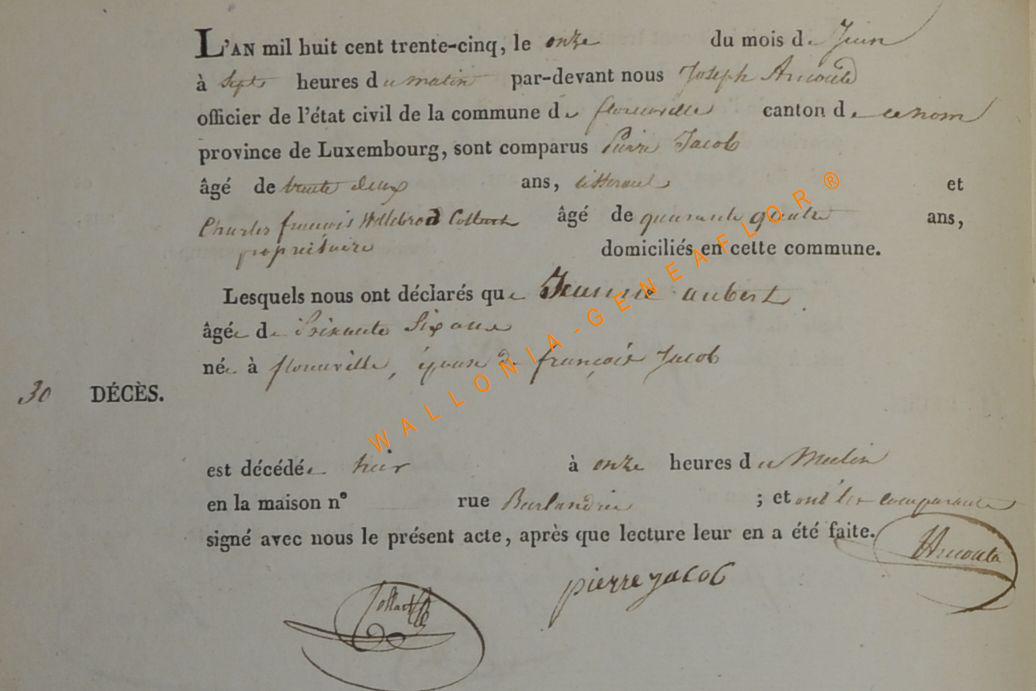 L'AN mil huit cent trente-cinq, le onze du mois de Juin
à sept heures du matin par-devant nous Joseph Arnould
officier de l'état civil de la commune de florenville canton de ce nom
province de Luxembourg, sont comparus Pierre Jacob
âgé de trente deux ans, et
Charles françois Willebrod Collard âgé de quarante quatre ans,
propriétaire domiciliés en cette commune.
Lesquels nous ont déclarés que Jeanne aubert
âgée de Soixante Six ans
née à florenville, épouse de françois Jacob
30 DÉCÈS.
est décédée hier à onze heures du Matin
en la maison n° rue ; et ont les comparants
signé avec nous le présent acte, après que lecture leur en a été faite.
Arnould
pierre jacob
WALLONIA-GENEAFLOR ®